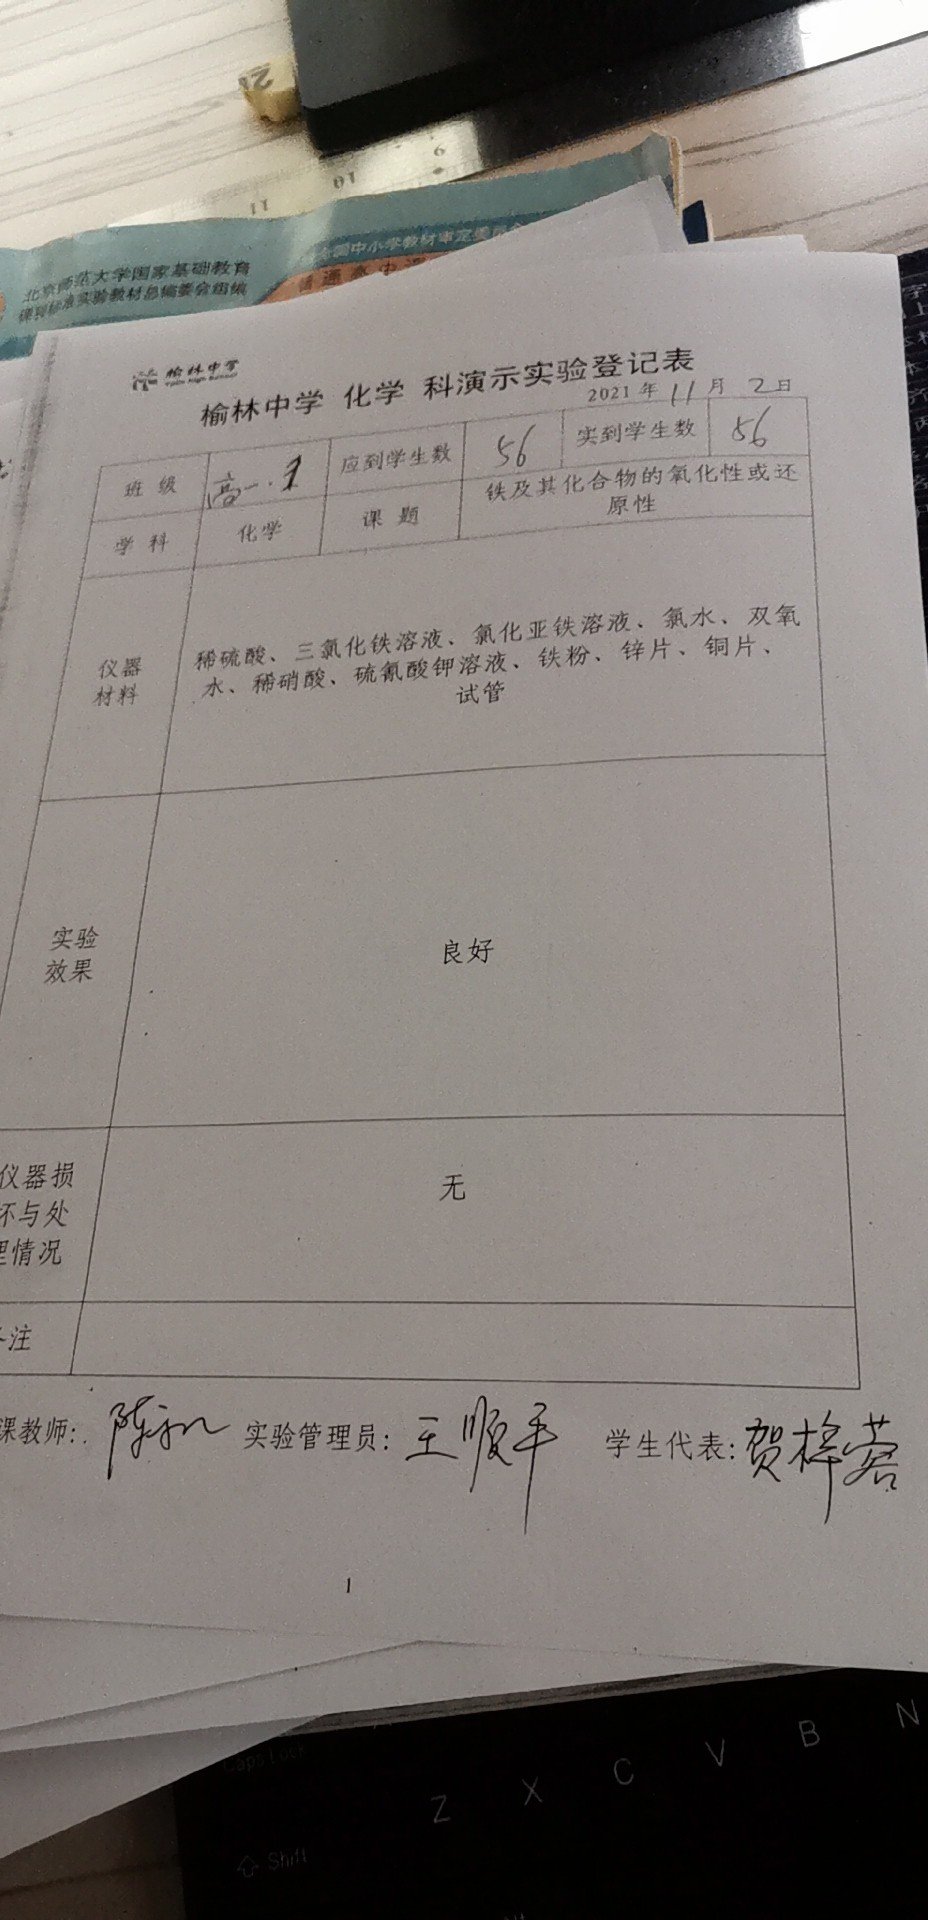 21
9
10
11
全国中小学教材审定委员会
北京师范大学国家基础教育
课程标准实验教材总编委会组编
普通高中课
榆林中学
Yulin High School
榆林中学 化学 科演示实验登记表
2021年 11 月 2 日
班 级 高一.1 应到学生数 56 实到学生数 56
学 科 化学 课 题 铁及其化合物的氧化性或还
原性
仪器
材料
稀硫酸、三氯化铁溶液、氯化亚铁溶液、氯水、双氧
水、稀硝酸、硫氰酸钾溶液、铁粉、锌片、铜片、
试管
实验
效果
良好
仪器损
坏与处
理情况
无
备注
课教师: 实验管理员: 王顺平 学生代表: 贺梓蓉
1
Caps Lock
Z X C V B N
Shift
Alt